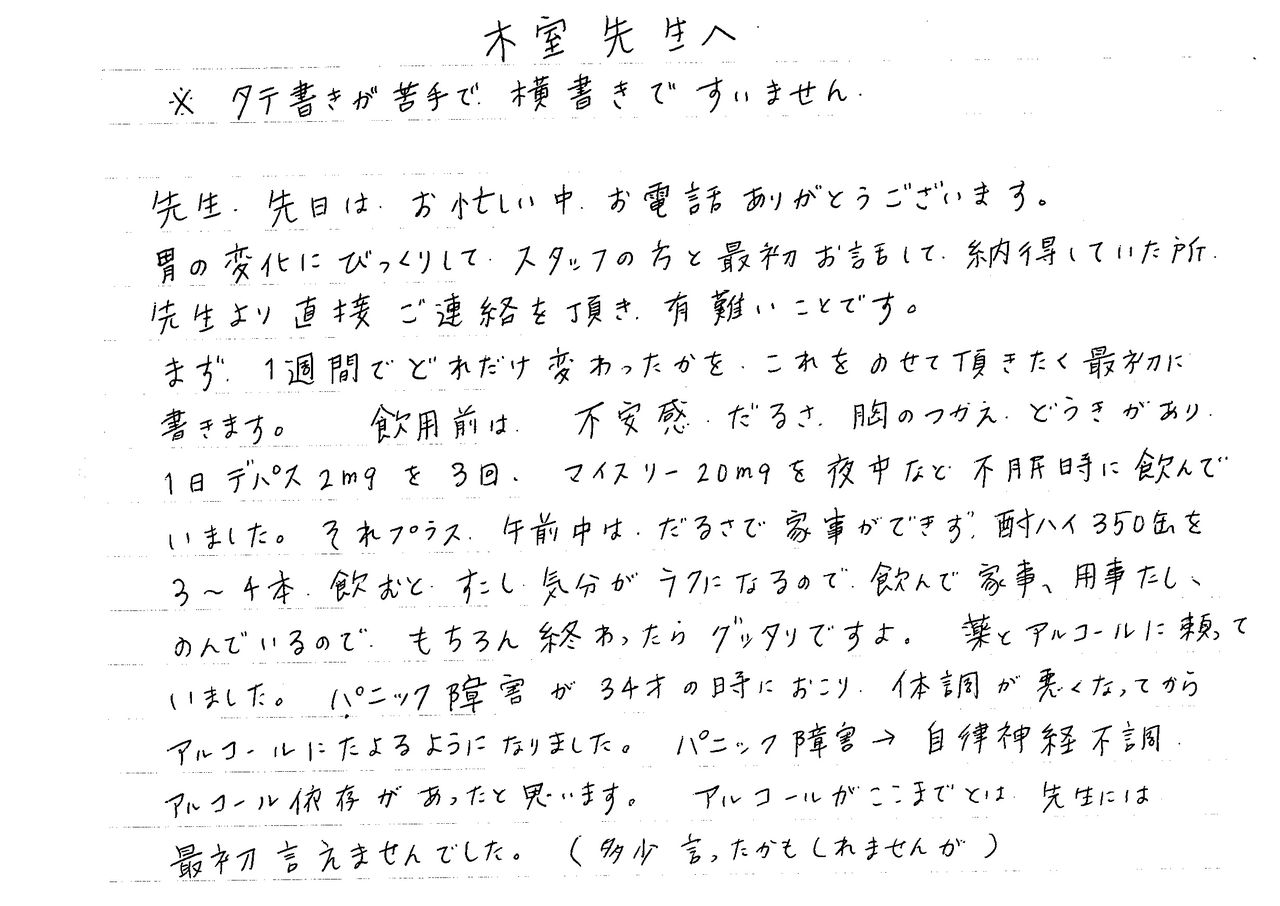 木室先生へ
※ タテ書きが苦手で、横書きですいません.
先生、先日は、お忙しい中、お電話ありがとうございます。
胃の変化にびっくりして、スタッフの方と最初お話して、納得していた所、
先生より直接ご連絡を頂き、有難いことです。
まず、1週間でどれだけ変わったかを、これをのせて頂きたく最初に
書きます。 飲用前は、 不安感、だるさ、胸のつかえ、どうきがあり、
1日デパス2mgを3回、 マイスリー20mgを夜中など不眠時に飲んで
いました。それプラス、午前中は、だるさで家事ができず、酎ハイ350缶を
3〜4本、飲むと、すこし気分がラクになるので、飲んで家事、用事たし、
のんでいるので、もちろん終わったらグッタリですよ。 薬とアルコールに頼って
いました。パニック障害が34才の時におこり、体調が悪くなってから
アルコールにたよるようになりました。 パニック障害→自律神経不調、
アルコール依存があったと思います。 アルコールがここまでとは、先生には
最初言えませんでした。(多少言ったかもしれませんが)